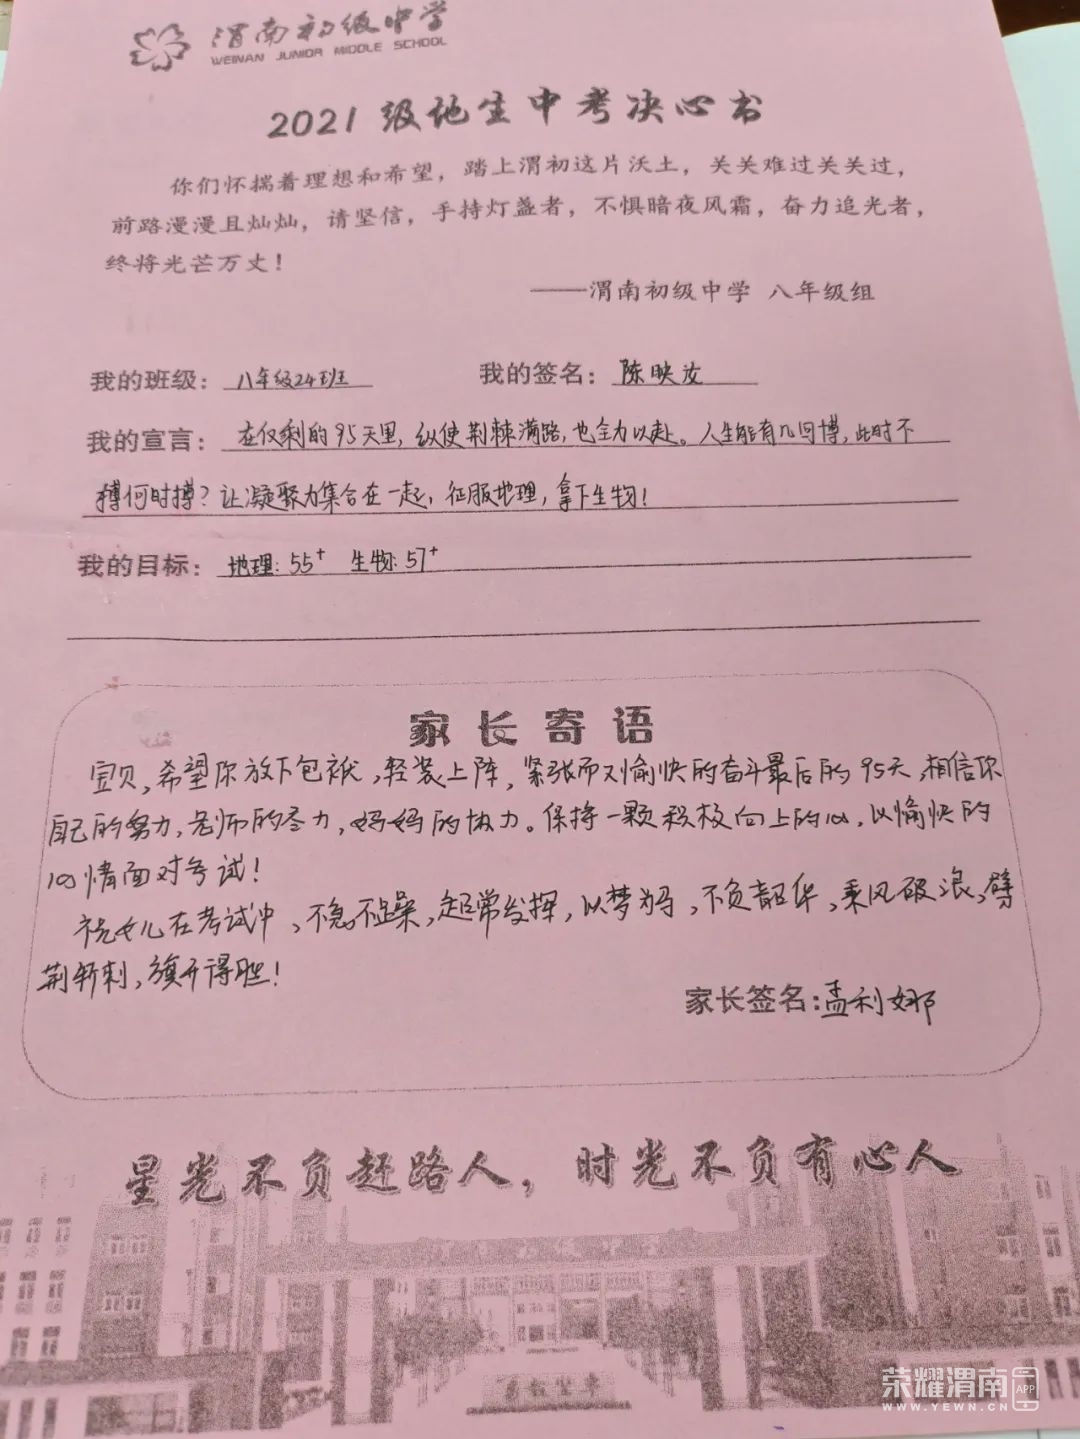 渭南初级中学
WEINAN JUNIOR MIDDLE SCHOOL
2021级地生中考决心书
你们怀揣着理想和希望，踏上渭初这片沃土，关关难过关关过，
前路漫漫且灿灿，请坚信，手持灯盏者，不惧暗夜风霜，奋力追光者，
终将光芒万丈！
——渭南初级中学 八年级组
我的班级：八年级24班 我的签名：陈映汝
我的宣言：在仅剩的95天里，纵使荆棘满路，也全力以赴。人生能有几回博，此时不
搏何时搏？让凝聚力集合在一起，征服地理，拿下生物！
我的目标：地理：55⁺ 生物：57⁺
家长寄语
宝贝，希望你放下包袱，轻装上阵，紧张而又愉快的奋斗最后的95天，相信你
自己的努力，老师的尽力，妈妈的协力。保持一颗积极向上的心，以愉快的
心情面对考试！
祝女儿在考试中，不急不躁，超常发挥，以梦为马，不负韶华，乘风破浪，劈
荆斩刺，旗开得胜！
家长签名：孟利娜
星光不负赶路人，时光不负有心人
荣耀渭南 APP
WWW.YEWN.CN